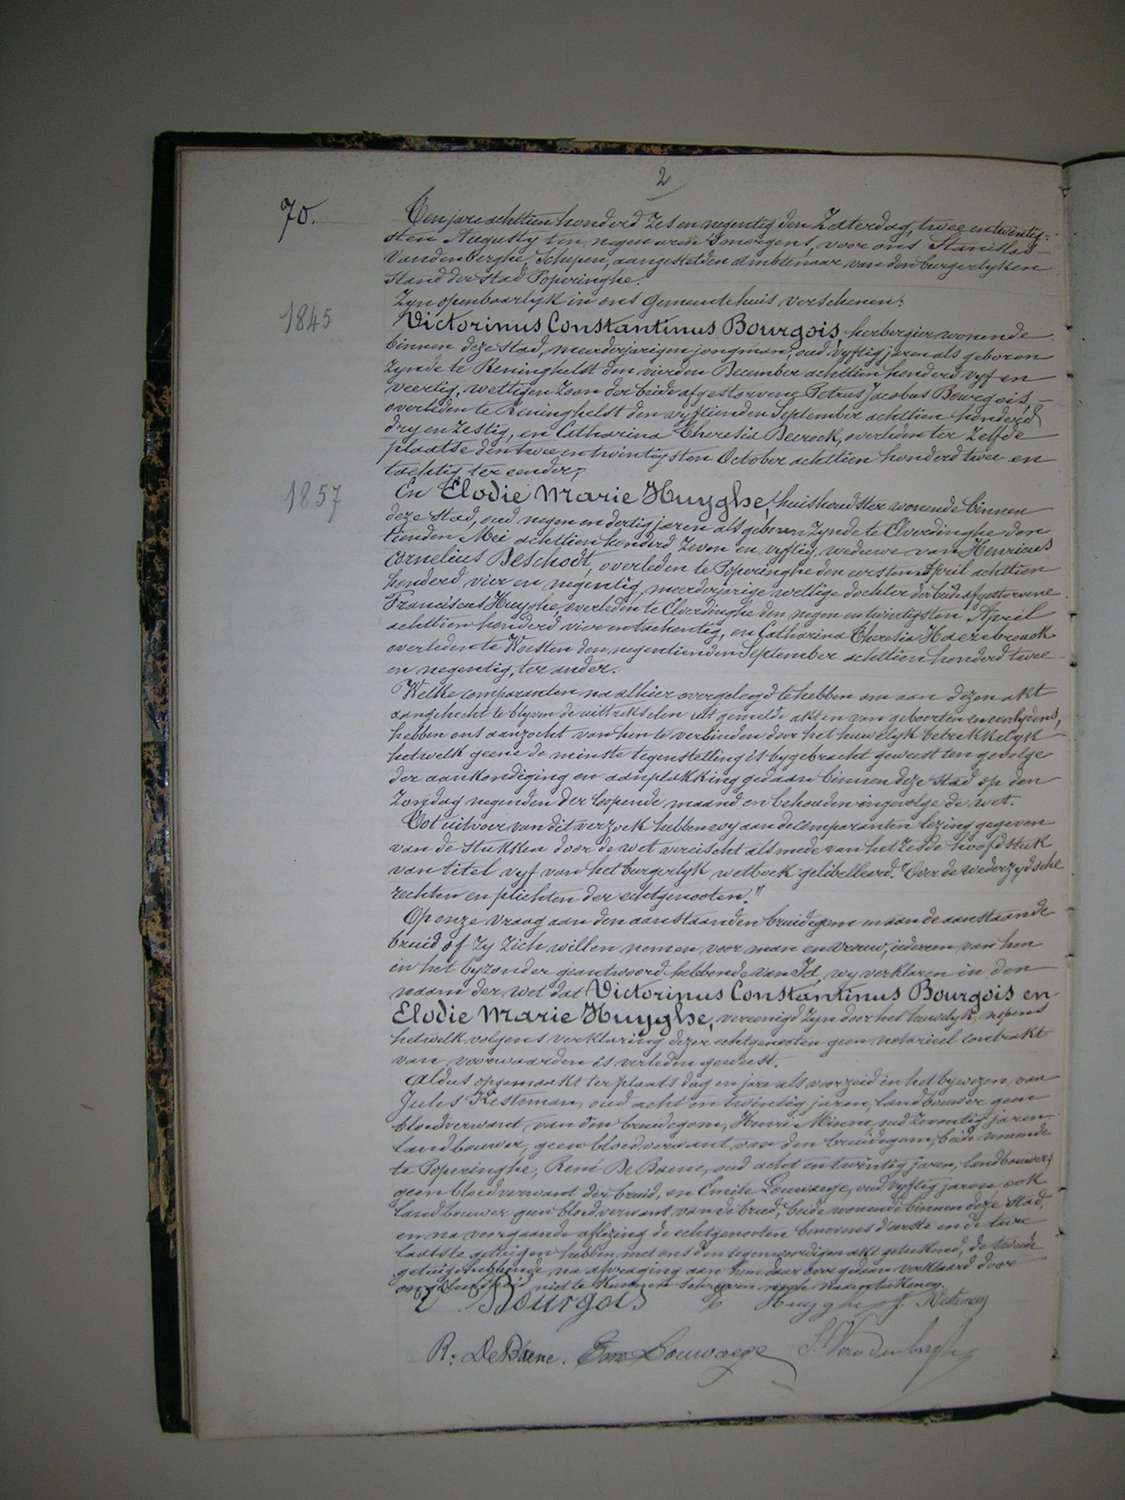 2
70.
Ten jare achttien honderd zes en negentig den Zaterdag, twee en twintig-
sten Augusty ten negen uren 's morgens, voor ons Stanislas
Vandenberghe, Schepene, aangestelden ambtenaar van den burgerlyken
stand der stad Poperinghe.
Zyn openbaarlyk in ons gemeentehuis verschenen:
1845
Victorinus Constantinus Bourgois, herbergier wonende
binnen deze stad, meerderjarigen jongman, oud vyftig jaren als geboren
zynde te Reninghelst den vierden December achttien honderd vyf en
veertig, wettigen zoon der beide afgestorvene Petrus Jacobus Bourgois,
overleden te Reninghelst den vyftienden September achttien honderd
dry en zestig, en Catharina Theresia Decrock, overleden ter zelfde
plaatse den twee en twintigsten October achttien honderd twee en
tachtig, ter eender;
1857
En Elodie Marie Huyghe, huishoudster wonende binnen
deze stad, oud negen en dertig jaren als geboren zynde te Elverdinghe den
tienden Mei achttien honderd zeven en vyftig, weduwe van Henricus
Cornelius Deschodt, overleden te Poperinghe den eersten April achttien
honderd vier en negentig, meerderjarige wettige dochter der beide afgestorvene
Franciscus Huyghe, overleden te Elverdinghe den negen en twintigsten April
achttien honderd vier en tachentig, en Catharina Theresia Haezebrouck
overleden te Woesten den negentienden September achttien honderd twee
en negentig, ter ander.
Welke comparanten na alhier overgelegd te hebben om aan dezen akt
aangehecht te blyven de uittrekselen uit gemelde akten van geboorten en overlydens,
hebben ons aanzocht van hen te verbinden door het huwelyk betrekkelyk
hetwelk geene de minste tegenstelling is bygebracht geweest ten gevolge
der aankondiging en aanplakking gedaan binnen deze stad op den
Zondag negenden der loopende maand en behouden ingevolge de wet.
Tot uitvoer van dit verzoek hebben wy aan de comparanten lezing gegeven
van de stukken door de wet vereischt alsmede van het zesde hoofdstuk
van titel vyf van het burgerlyk wetboek gelibelleerd: "Over de wederzydsche
rechten en plichten der echtgenooten."
Op onze vraag aan den aanstaanden bruidegom en aan de aanstaande
bruid of zy zich willen nemen voor man en vrouw, iedereen van hen
in het byzonder geantwoord hebbende van Ja, wy verklaren in den
naam der wet dat Victorinus Constantinus Bourgois en
Elodie Marie Huyghe, vereenigd zyn door het huwelyk, nopens
hetwelk volgens verklaring dezer echtgenooten geen notarieel contrakt
van voorwaarden is verleden geweest.
Aldus opgemaakt ter plaats dag en jare als voorzeid in het bywezen van
Jules Kesteman, oud acht en twintig jaren, landbouwer geen
bloedverwant van den bruidegom, Henri Minne, oud zeventig jaren
landbouwer, geen bloedverwant van den bruidegom, beide wonende
te Poperinghe, René De Baene, oud acht en twintig jaren, landbouwer,
geen bloedverwant der bruid, en Emile Louwaege, oud vyftig jaren ook
landbouwer geen bloedverwant van de bruid, beide wonende binnen deze stad,
en na voorgaande aflezing de echtgenooten benevens d'eerste en de twee
laatste getuigen hebben met ons den tegenwoordigen akt geteekend, de tweede
getuige hebbende na afvraging aan hem daar over gedaan verklaard door
niet te kunnen schryven noch naamteekenen.
V Bourgois E Huyghe J. Kesteman
R. DeBaene. Em Louwaege S. Vandenberghe